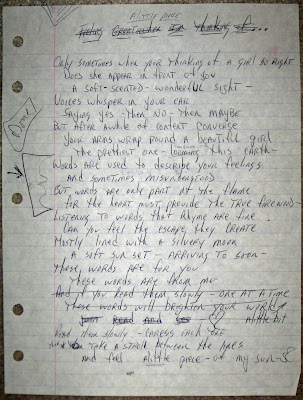 ALITTLE PIECE
Only sometimes when your thinking of a girl so right
Does she appear in front of you
A soft-scented-wonderful sight-
Voices whisper in your ear
Saying yes-then no-then maybe
But after awhile of content converge
Your arms wrap round a beautiful girl
The prettiest one this earth-
Words are used to describe your feelings
And sometimes misunderstood
But words are only part of the flame
for the heart must provide the true firewind-
Listening to words that rhyme are fine
Can you feel the escape, they create
Mostly lined with a silvery moon
A soft sun set - arriving to soon-
These words are for you
These words are from me
And if you read them slowly - one at a time
These words will brighten your world
Just Read and see - Alittle bit
Read them slowly - caress each one
Take a stroll between the lines
And feel - alittle piece - of my soul-
Done